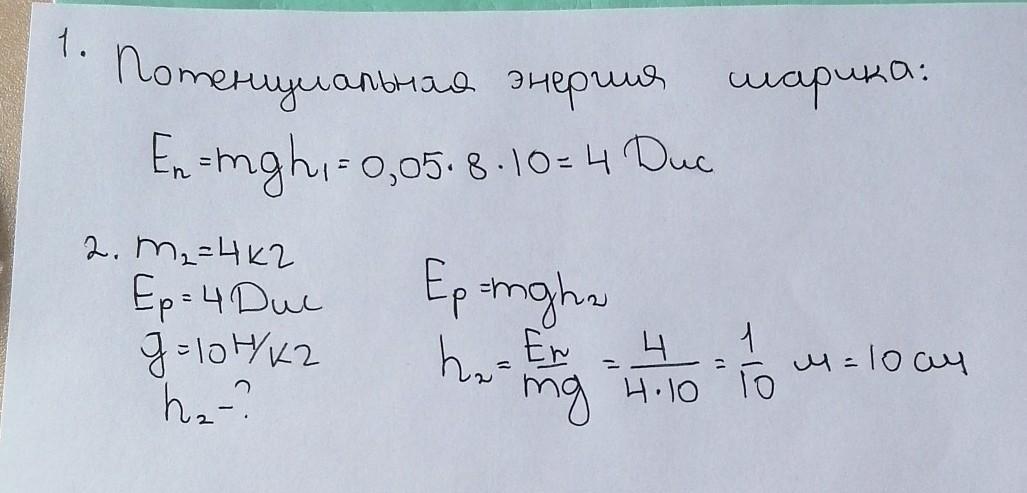 1. Потенциальная энергия шарика:
Eп = mgh₁ = 0,05 · 8 · 10 = 4 Дж
2. m₂ = 4 кг
Ep = 4 Дж
g = 10 Н/кг
h₂ - ?
Ep = mgh₂
h₂ = Eп/mg = 4/(4·10) = 1/10 м = 10 см